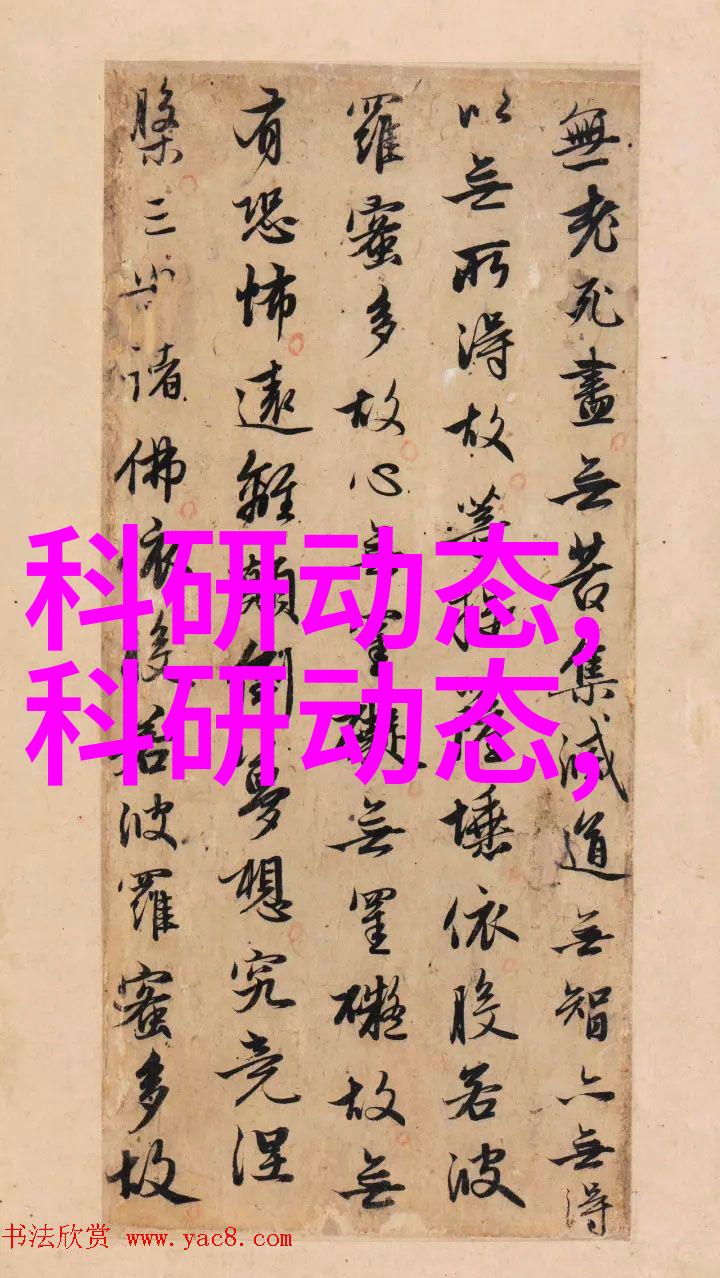 無老死盡無苦集滅道無智亦無得
以無所得故菩提薩埵依般若波
羅蜜多故心無罣礙無罣礙故無
有恐怖遠離顛倒夢想究竟涅
槃三世諸佛依般若波羅蜜多故
科研动态,
科研动态,
书法欣赏 www.yac8.com